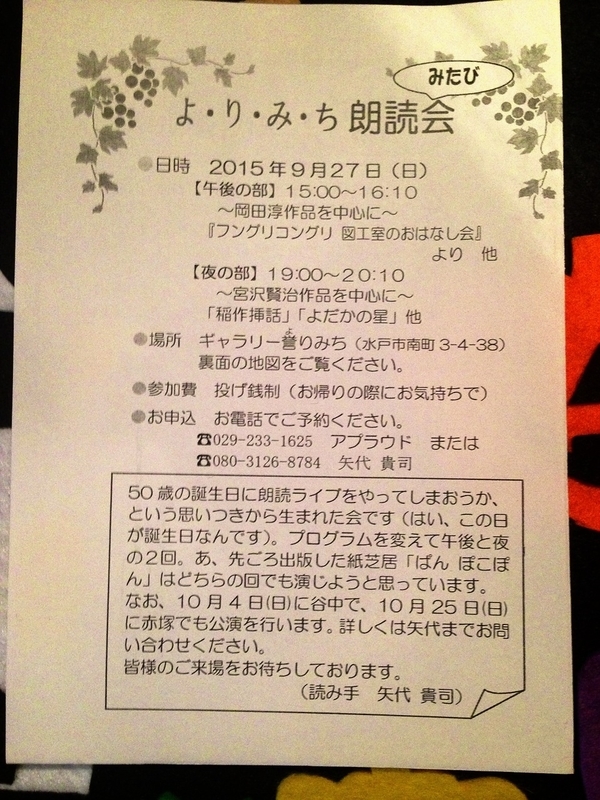 みたび
よ・り・み・ち 朗読会
●日時　2015年9月27日（日）
【午後の部】15:00～16:10
～岡田淳作品を中心に～
『フングリコングリ 図工室のおはなし会』
より　他
【夜の部】19:00～20:10
～宮沢賢治作品を中心に～
「稲作挿話」「よだかの星」他
よ
●場所　ギャラリー誉りみち（水戸市南町 3-4-38）
裏面の地図をご覧ください。
●参加費　投げ銭制（お帰りの際にお気持ちで）
●お申込　お電話でご予約ください。
☎029-233-1625　アプラウド　または
☎080-3126-8784　矢代 貴司
50 歳の誕生日に朗読ライブをやってしまおうか、
という思いつきから生まれた会です（はい、この日
が誕生日なんです）。プログラムを変えて午後と夜
の２回。あ、先ごろ出版した紙芝居「ぱん ぽこぽ
ん」はどちらの回でも演じようと思っています。
なお、10 月 4 日(日)に谷中で、10 月 25 日(日)
に赤塚でも公演を行います。詳しくは矢代までお問
い合わせください。
皆様のご来場をお待ちしております。
（読み手　矢代 貴司）